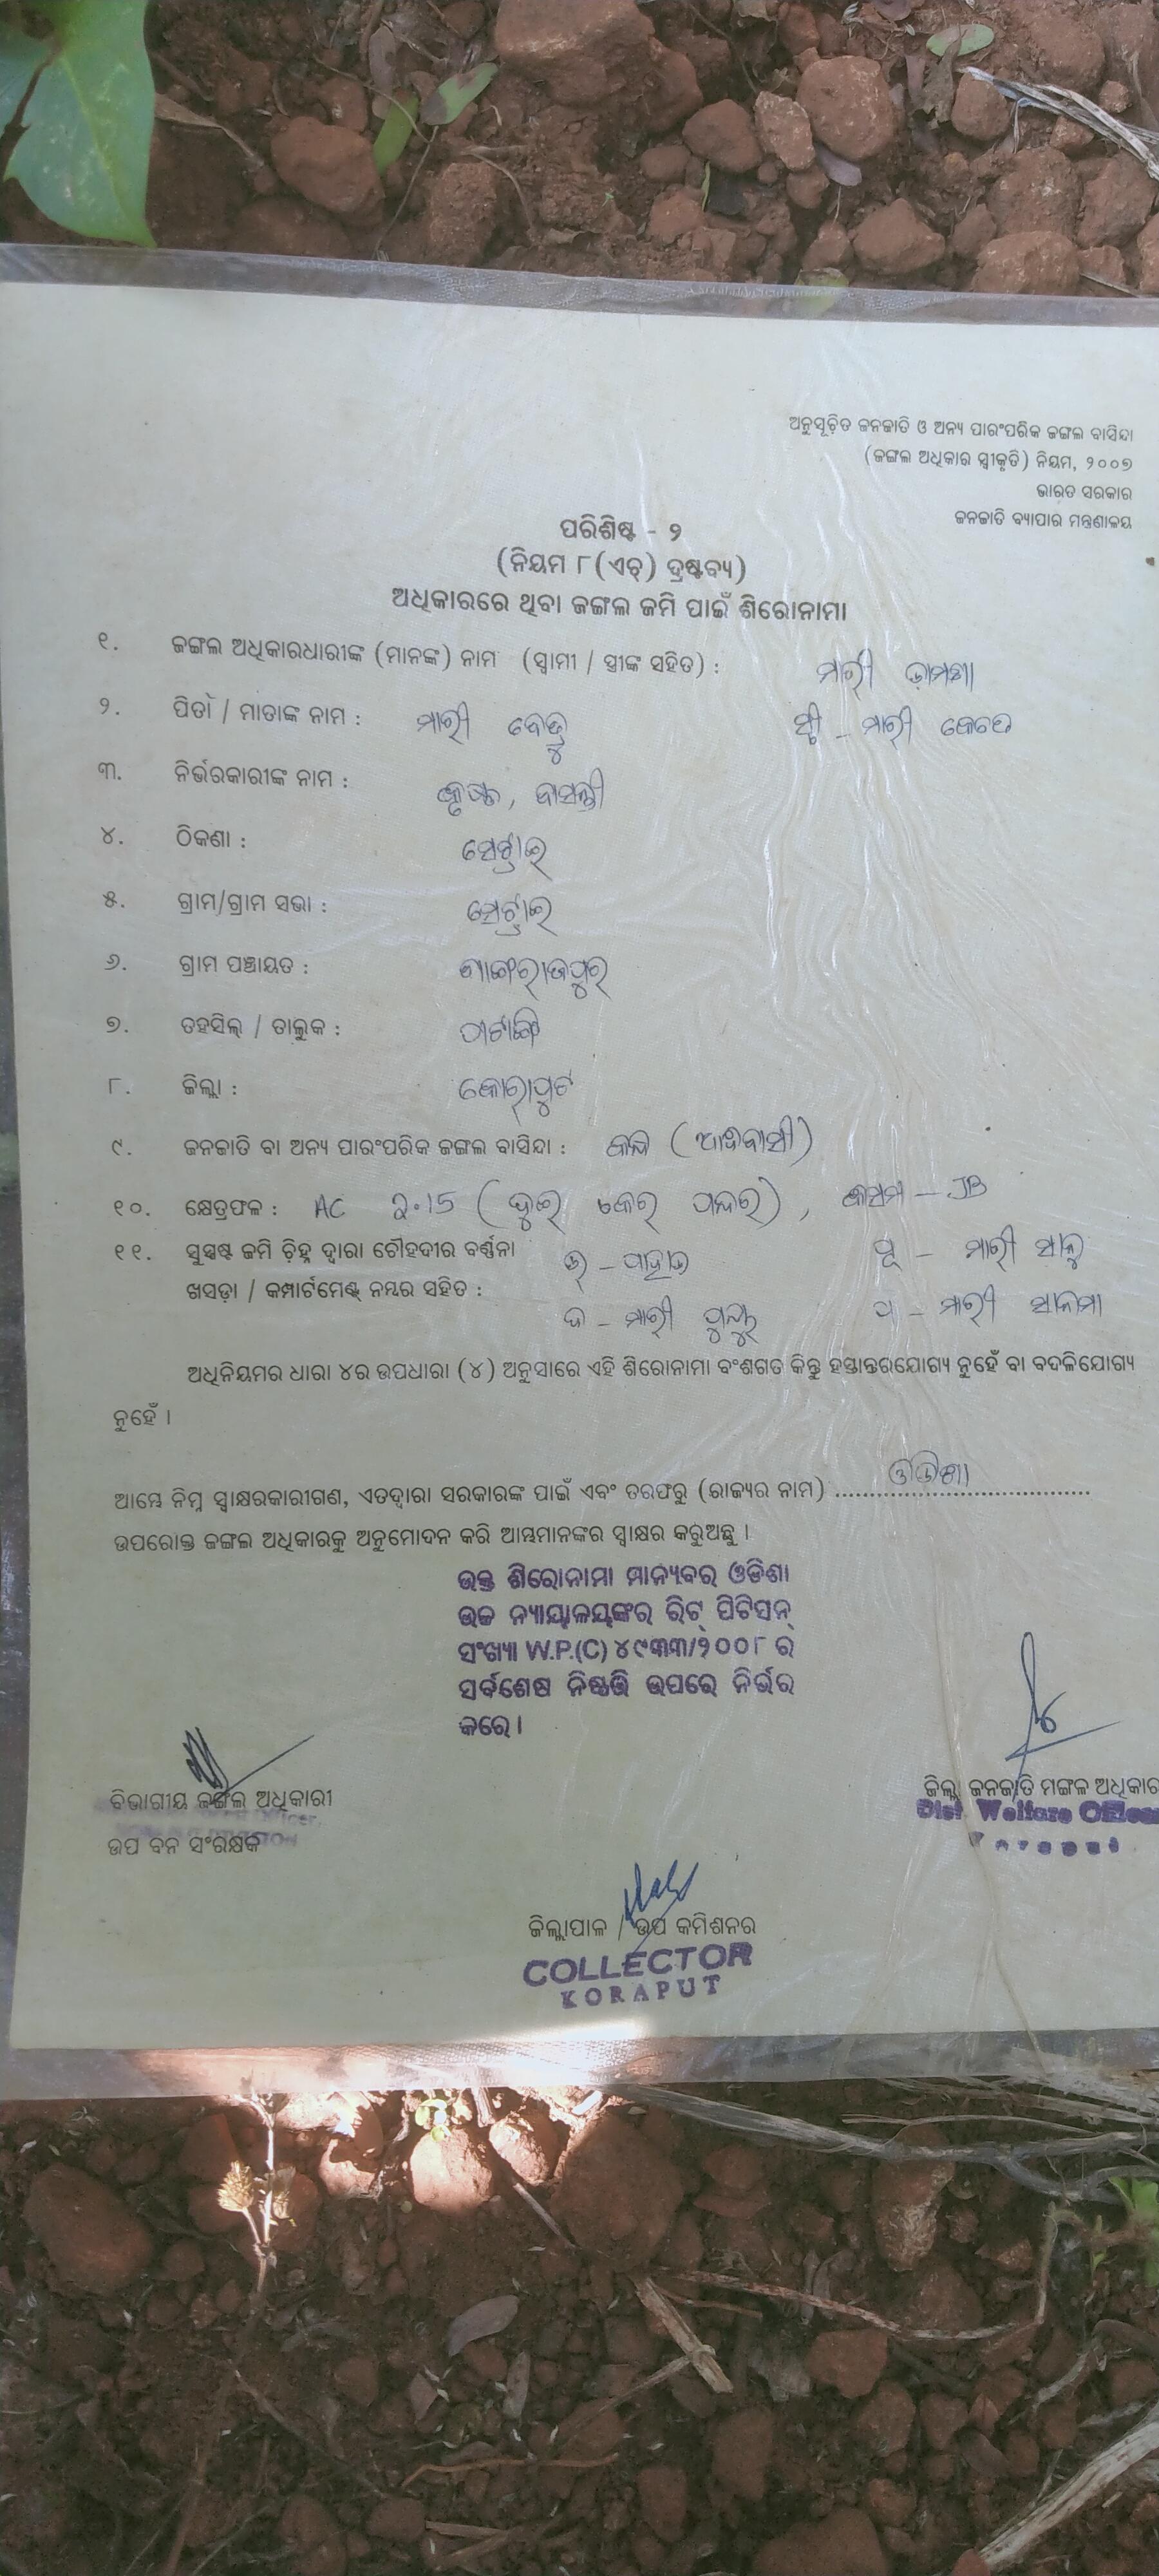 ଅନୁସୂଚିତ ଜନଜାତି ଓ ଅନ୍ୟ ପାରଂପରିକ ଜଙ୍ଗଲ ବାସିନ୍ଦା
(ଜଙ୍ଗଲ ଅଧିକାର ସ୍ୱୀକୃତି) ନିୟମ, ୨୦୦୭
ଭାରତ ସରକାର
ଜନଜାତି ବ୍ୟାପାର ମନ୍ତ୍ରଣାଳୟ
ପରିଶିଷ୍ଟ - ୨
(ନିୟମ ୮(ଏଚ୍) ଦ୍ରଷ୍ଟବ୍ୟ)
ଅଧିକାରରେ ଥିବା ଜଙ୍ଗଲ ଜମି ପାଇଁ ଶିରୋନାମା
୧. ଜଙ୍ଗଲ ଅଧିକାରଧାରୀଙ୍କ (ମାନଙ୍କ) ନାମ (ସ୍ୱାମୀ / ସ୍ତ୍ରୀଙ୍କ ସହିତ) : ମାରୀ
୨. ପିତା / ମାତାଙ୍କ ନାମ : ମାରୀ ସ୍ତ୍ରୀ - ମାରୀ
୩. ନିର୍ଭରକାରୀଙ୍କ ନାମ : ବାସନ୍ତୀ
୪. ଠିକଣା :
୫. ଗ୍ରାମ/ଗ୍ରାମ ସଭା :
୬. ଗ୍ରାମ ପଞ୍ଚାୟତ :
୭. ତହସିଲ୍ / ତାଲୁକ : ପଟାଙ୍ଗି
୮. ଜିଲ୍ଲା : କୋରାପୁଟ
୯. ଜନଜାତି ବା ଅନ୍ୟ ପାରଂପରିକ ଜଙ୍ଗଲ ବାସିନ୍ଦା : କନ୍ଧ (ଆଦିବାସୀ)
୧୦. କ୍ଷେତ୍ରଫଳ : AC 2.15 (ଦୁଇ ଏକର ପନ୍ଦର), କିସମ - JB
୧୧. ସୁସ୍ପଷ୍ଟ ଜମି ଚିହ୍ନ ଦ୍ୱାରା ଚୌହଦୀର ବର୍ଣ୍ଣନା ଉ - ପାହାଡ ପୂ - ମାରୀ
ଖସଡ଼ା / କମ୍ପାର୍ଟମେଣ୍ଟ୍ ନମ୍ବର ସହିତ : ଦ - ମାରୀ ପ - ମାରୀ
ଅଧିନିୟମର ଧାରା ୪ର ଉପଧାରା (୪) ଅନୁସାରେ ଏହି ଶିରୋନାମା ବଂଶଗତ କିନ୍ତୁ ହସ୍ତାନ୍ତରଯୋଗ୍ୟ ନୁହେଁ ବା ବଦଳିଯୋଗ୍ୟ
ନୁହେଁ ।
ଆମ୍ଭେ ନିମ୍ନ ସ୍ୱାକ୍ଷରକାରୀଗଣ, ଏତଦ୍ୱାରା ସରକାରଙ୍କ ପାଇଁ ଏବଂ ତରଫରୁ (ରାଜ୍ୟର ନାମ) ଓଡିଶା
ଉପରୋକ୍ତ ଜଙ୍ଗଲ ଅଧିକାରକୁ ଅନୁମୋଦନ କରି ଆମ୍ଭମାନଙ୍କର ସ୍ୱାକ୍ଷର କରୁଅଛୁ ।
ଉକ୍ତ ଶିରୋନାମା ମାନ୍ୟବର ଓଡିଶା
ଉଚ୍ଚ ନ୍ୟାୟାଳୟଙ୍କର ରିଟ୍ ପିଟିସନ୍
ସଂଖ୍ୟା W.P.(C) ୪୯୩୩/୨୦୦୮ ର
ସର୍ବଶେଷ ନିଷ୍ପତ୍ତି ଉପରେ ନିର୍ଭର
କରେ ।
ବିଭାଗୀୟ ଜଙ୍ଗଲ ଅଧିକାରୀ
ଉପ ବନ ସଂରକ୍ଷକ
ଜିଲ୍ଲା ଜନଜାତି ମଙ୍ଗଳ ଅଧିକାର
Dist Welfare Officer
ଜିଲ୍ଲାପାଳ / ଉପ କମିଶନର
COLLECTOR
KORAPUT